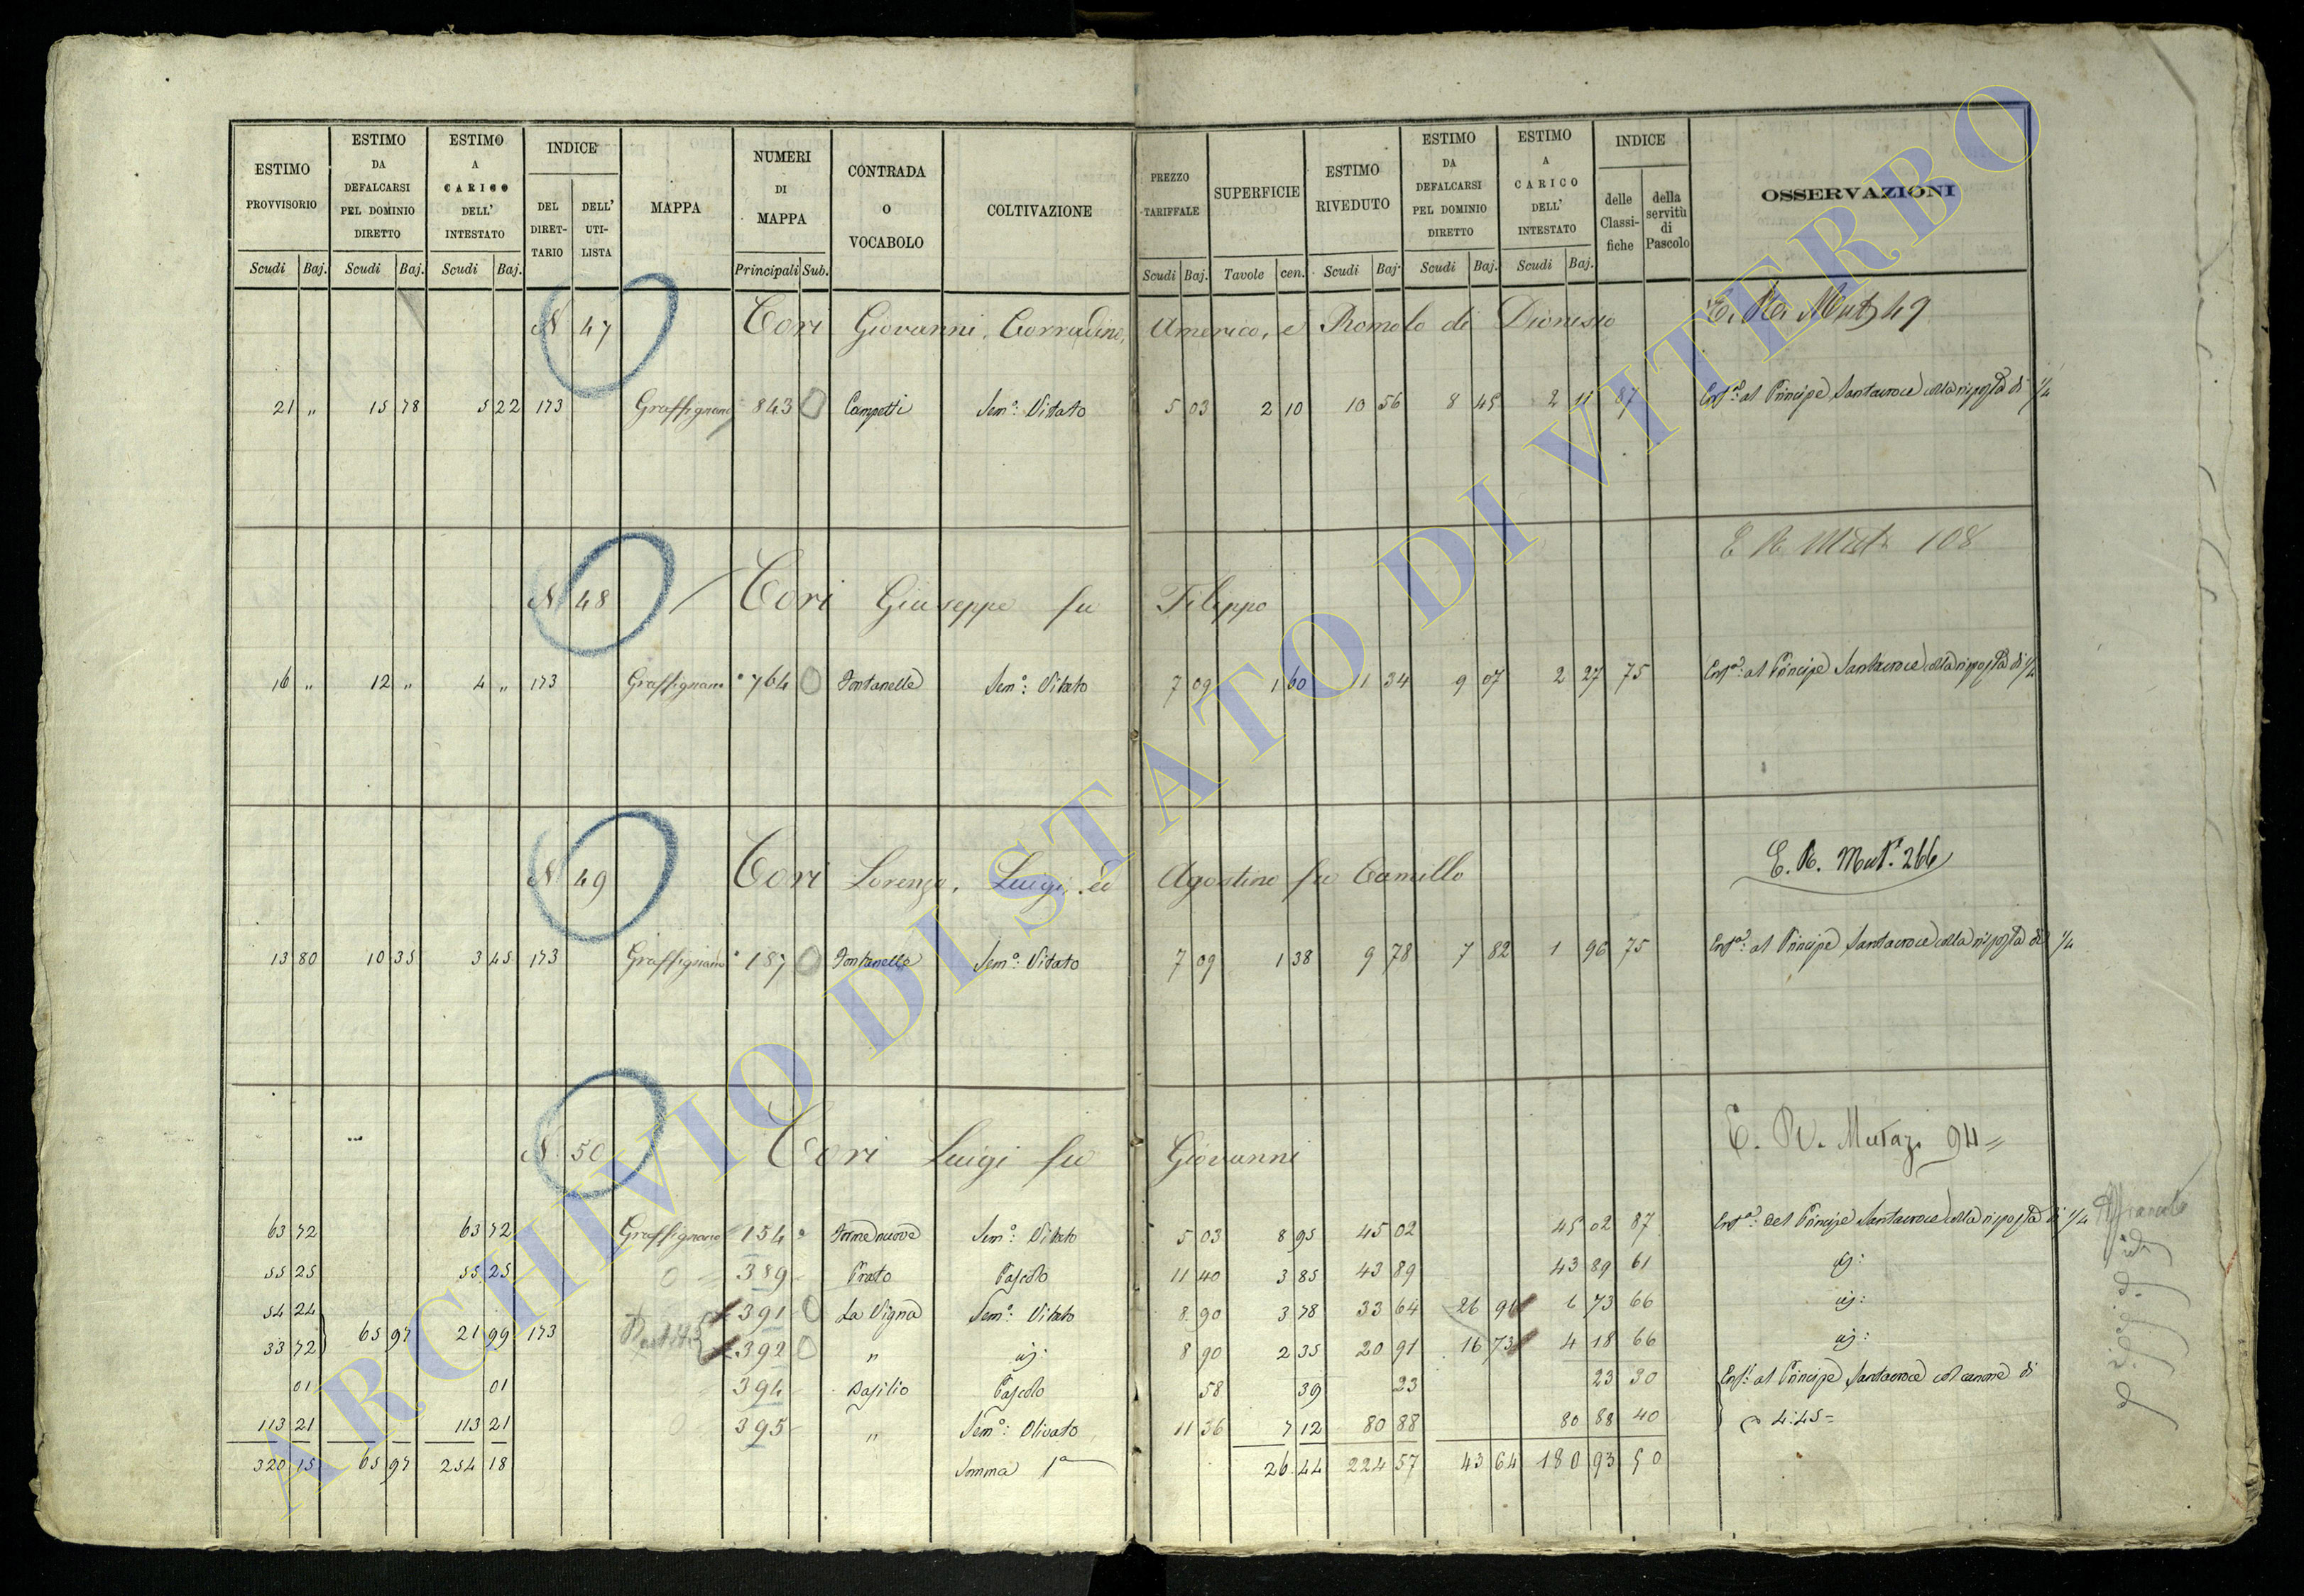 ESTIMO PROVVISORIO | ESTIMO DA DEFALCARSI PEL DOMINIO DIRETTO | ESTIMO A CARICO DELL' INTESTATO | INDICE DEL DIRET-TARIO | DELL' UTI-LISTA | MAPPA | NUMERI DI MAPPA | CONTRADA O VOCABOLO | COLTIVAZIONE | PREZZO TARIFFALE | SUPERFICIE | ESTIMO RIVEDUTO | ESTIMO DA DEFALCARSI PEL DOMINIO DIRETTO | ESTIMO A CARICO DELL' INTESTATO | INDICE delle Classi-fiche | della servitù di Pascolo | OSSERVAZIONI
Scudi Baj. Scudi Baj. Scudi Baj. Principali Sub. Scudi Baj. Tavole cen. Scudi Baj. Scudi Baj. Scudi Baj.
N 47 Cori Giovanni, Corradino, Americo, e Romolo di Dionisio E. R. Mut 49
21 " 15 78 5 22 173 Graffignano 843 Campetti Semo: Vitato 5 03 2 10 10 56 8 45 2 11 87 al Principe Santacroce colla risposta di 1/4
E R Mut 108
N 48 Cori Giuseppe fu Filippo
16 " 12 " 4 " 173 Graffignano 764 Fontanelle Semo: Vitato 7 09 1 60 11 34 9 07 2 27 75 al Principe Santacroce colla risposta di 1/4
E. R. Mut. 266
N 49 Cori Lorenzo, Luigi, ed Agostino fu Camillo
13 80 10 35 3 45 173 Graffignano 187 Fontanelle Semo: Vitato 7 09 1 38 9 78 7 82 1 96 75 al Principe Santacroce colla risposta di 1/4
E. R. Mutaz. 94
N 50 Cori Luigi fu Giovanni
63 72 63 72 Graffignano 154 Semo: Vitato 5 03 8 95 45 02 45 02 87 del Principe Santacroce colla risposta di 1/4
55 25 55 25 389 Prato Pascolo 11 40 3 85 43 89 43 89 61
54 24 391 La Vigna Semo: Vitato 8 90 3 78 33 64 26 91 6 73 66
65 97 21 99 173
33 72 392 " 8 90 2 35 20 91 16 73 4 18 66
01 01 394 Basilio Pascolo 58 39 23 23 30 al Principe Santacroce col canone di
113 21 113 21 395 " Semo: Olivato 11 36 7 12 80 88 80 88 40 4:45
320 15 65 97 254 18 Somma 1a 26 44 224 57 43 64 180 93 50
ARCHIVIO DI STATO DI VITERBO